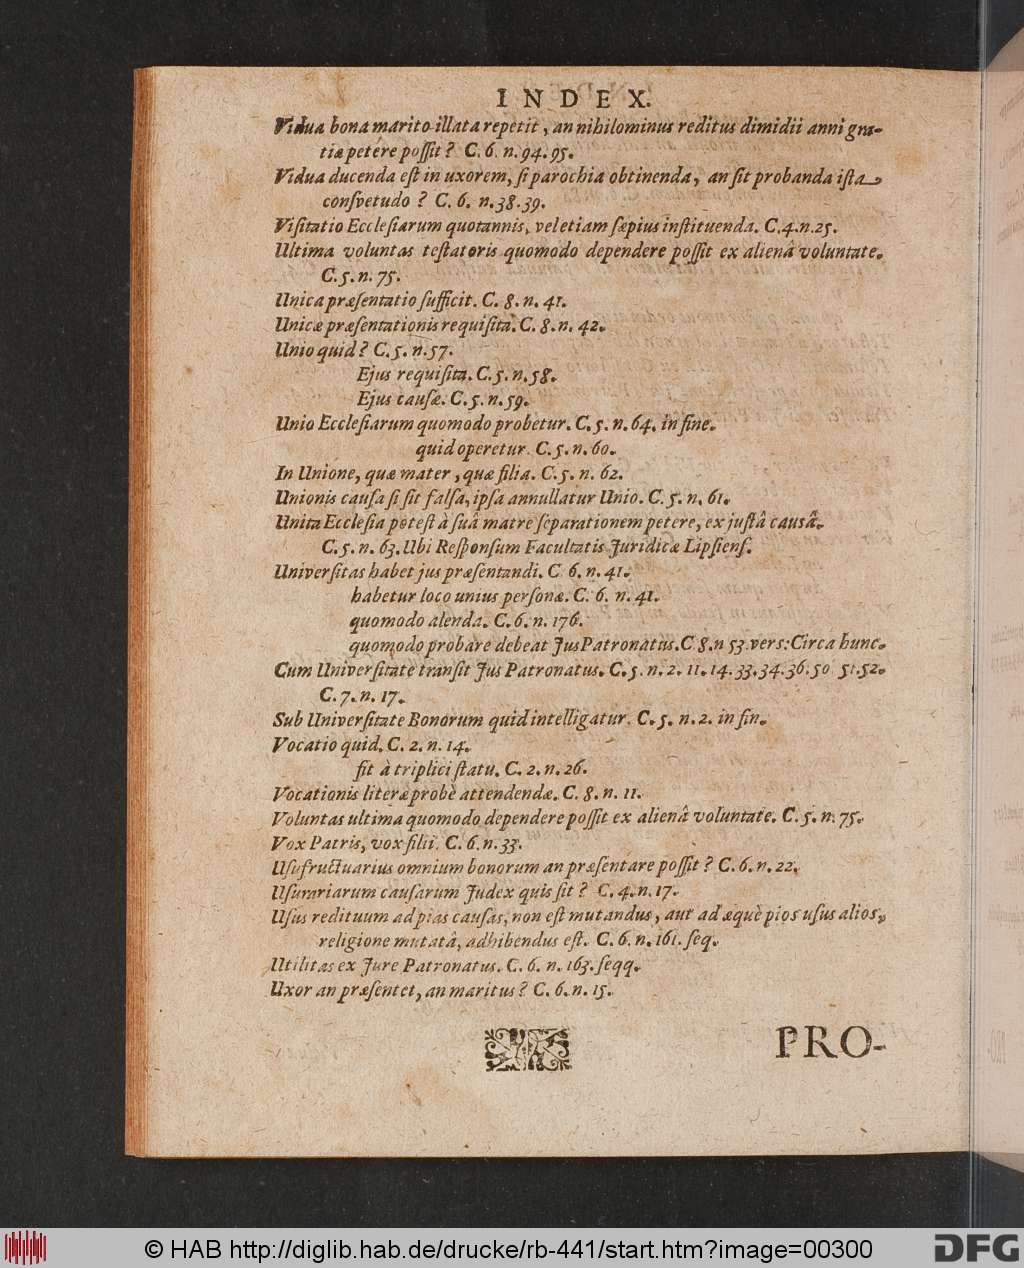 INDEX.
Vidua bona marito illata repetit, an nihilominus reditus dimidii anni gra-
tiæ petere poſſit? C. 6. n. 94. 95.
Vidua ducenda eſt in uxorem, ſi parochia obtinenda, an ſit probanda iſta
conſvetudo? C. 6. n. 38. 39.
Viſitatio Eccleſiarum quotannis, vel etiam ſæpius inſtituenda. C. 4. n. 25.
Ultima voluntas teſtatoris quomodo dependere poſſit ex alienâ voluntate.
C. 5. n. 75.
Unica præſentatio ſufficit. C. 8. n. 41.
Unicæ præſentationis requiſita. C. 8. n. 42.
Unio quid? C. 5. n. 57.
Ejus requiſita. C. 5. n. 58.
Ejus cauſæ. C. 5. n. 59.
Unio Eccleſiarum quomodo probetur. C. 5. n. 64. in fine.
quid operetur. C. 5. n. 60.
In Unione, quæ mater, quæ filia. C. 5. n. 62.
Unionis cauſa ſi ſit falſa, ipſa annullatur Unio. C. 5. n. 61.
Unita Eccleſia poteſt à ſuâ matre ſeparationem petere, ex juſtâ causâ.
C. 5. n. 63. Ubi Reſponſum Facultatis Juridicæ Lipſienſ.
Univerſitas habet jus præſentandi. C 6. n. 41.
habetur loco unius perſonæ. C. 6. n. 41.
quomodo alenda. C. 6. n. 176.
quomodo probare debeat Jus Patronatus. C 8. n 53. vers: Circa hunc.
Cum Univerſitate tranſit Jus Patronatus. C. 5. n. 2. 11. 14. 33. 34. 36. 50 51. 52.
C. 7. n. 17.
Sub Univerſitate Bonorum quid intelligatur. C. 5. n. 2. in fin.
Vocatio quid. C. 2. n. 14.
fit à triplici ſtatu. C. 2. n. 26.
Vocationis literæ probè attendendæ. C. 8. n. 11.
Voluntas ultima quomodo dependere poſſit ex alienâ voluntate. C. 5. n. 75.
Vox Patris, vox filii. C. 6. n. 33.
Uſufructuarius omnium bonorum an præſentare poſſit? C. 6. n. 22.
Uſurariarum cauſarum Judex quis ſit? C. 4. n. 17.
Uſus redituum ad pias cauſas, non eſt mutandus, aut ad æquè pios uſus alios,
religione mutatâ, adhibendus eſt. C. 6. n. 161. ſeq.
Utilitas ex Jure Patronatus. C. 6. n. 163. ſeqq.
Uxor an præſentet, an maritus? C. 6. n. 15.
PRO-
© HAB http://diglib.hab.de/drucke/rb-441/start.htm?image=00300
DFG